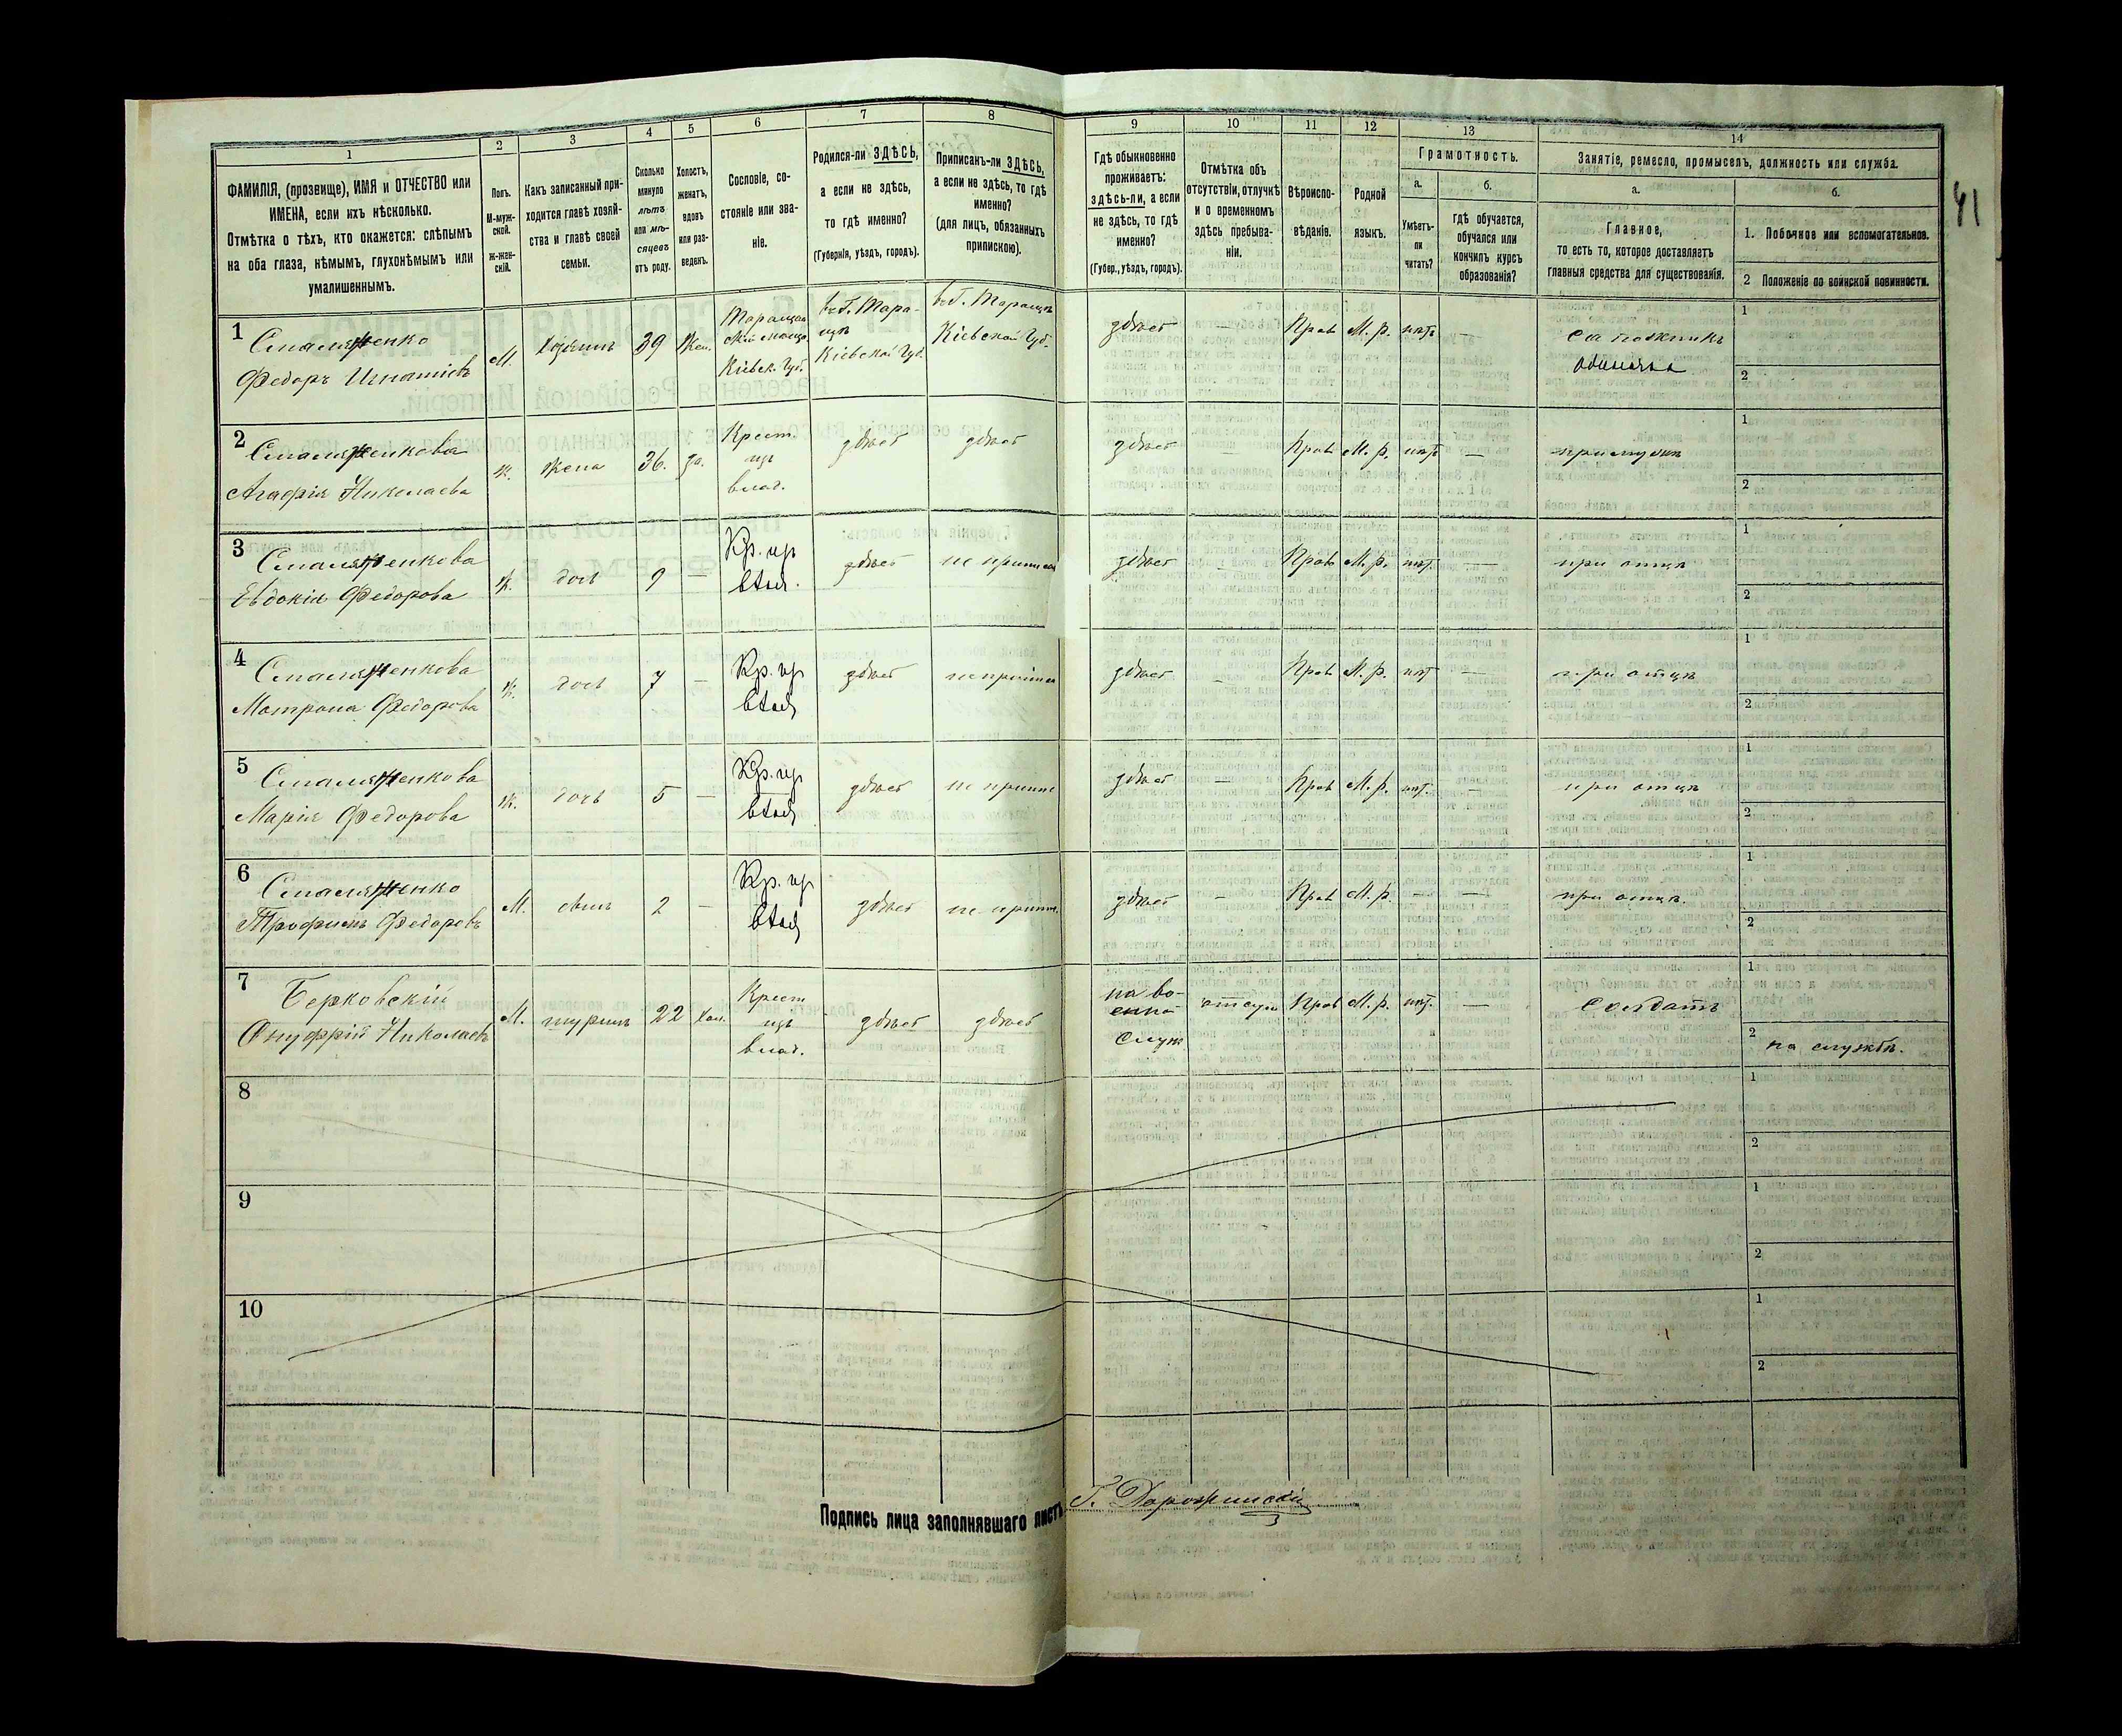 41
1
2
3
4
5
6
7
8
9
10
11
12
13
14
ФАМИЛІЯ, (прозвище), ИМЯ и ОТЧЕСТВО или
ИМЕНА, если ихъ нѣсколько.
Отмѣтка о тѣхъ, кто окажется: слѣпымъ
на оба глаза, нѣмымъ, глухонѣмымъ или
умалишеннымъ.
Полъ.
М-муж-
ской.
Ж-жен-
скій.
Какъ записанный при-
ходится главѣ хозяй-
ства и главѣ своей
семьи.
Сколько
минуло
лѣтъ
или мѣ-
сяцевъ
отъ роду.
Холостъ,
женатъ,
вдовъ
или раз-
веденъ.
Сословіе, со-
стояніе или зва-
ніе.
Родился-ли ЗДѢСЬ,
а если не здѣсь,
то гдѣ именно?
(Губернія, уѣздъ, городъ).
Приписанъ-ли ЗДѢСЬ,
а если не здѣсь, то гдѣ
именно?
(для лицъ, обязанныхъ
припискою).
Гдѣ обыкновенно
проживаетъ:
здѣсь-ли, а если
не здѣсь, то гдѣ
именно?
(Губер., уѣздъ, городъ).
Отмѣтка объ
отсутствіи, отлучкѣ
и о временномъ
здѣсь пребыва-
ніи.
Вѣроиспо-
вѣданіе.
Родной
языкъ.
Грамотность.
а.
Умѣетъ-
ли
читать?
б.
гдѣ обучается,
обучался или
кончилъ курсъ
образованія?
Занятіе, ремесло, промыселъ, должность или служба.
а.
Главное,
то есть то, которое доставляетъ
главныя средства для существованія.
б.
1. Побочное или вспомогательное.
2 Положеніе по воинской повинности.
1
Федоръ Игнатіевъ
М.
Хозяинъ
39
Жен.
Кіевск. Губ.
въ Г. Тара-
щѣ
Кіевской Губ.
въ Г. Таращѣ
Кіевской Губ.
здѣсь
—
Прав
М. р.
нѣтъ
—
Сапожникъ
одиночка
1
2
2
Агафія Николаева
ж.
жена
36.
за.
Крест.
изъ
влад.
здѣсь
здѣсь
здѣсь
—
Прав
М. р.
нѣт
—
при мужѣ
1
2
3
Евдокія Федорова
ж.
дочь
9
—
Кр. из
влад.
здѣсь
не припис
здѣсь
—
Прав
М. р.
нѣт.
—
при отцѣ
1
2
4
Матрона Федорова
ж.
дочь
7
—
Кр. из
влад
здѣсь
не припис
здѣсь
—
Прав
М. р.
нѣт
—
при отцѣ
1
2
5
Марія Федорова
ж.
дочь
5
—
Кр. из
влад
здѣсь
не припис
здѣсь
—
Прав
М. р.
нѣт.
—
при отцѣ
1
2
6
Трофимъ Федоровъ
М.
сынъ
2
—
Кр. из
влад
здѣсь
не припис.
здѣсь
—
Прав
М. р.
—
—
при отцѣ.
1
2
7
Берковскій
Онуфрій Николаевъ
М.
шуринъ
22
Хол.
Крест
изъ
влад.
здѣсь
здѣсь
на во-
енно
служ
отсут
Прав
М. р.
нѣт.
—
Солдатъ
1
2
на службѣ.
8
1
2
9
1
2
10
1
2
Подпись лица заполнявшаго листъ